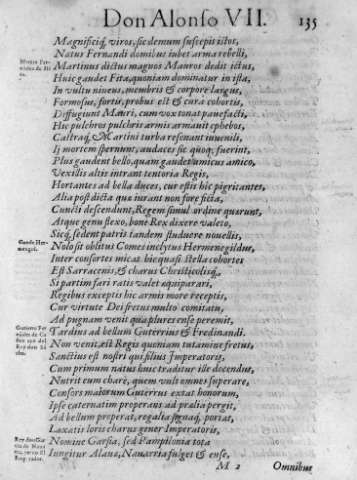 Don Alonso VII. 135
Magnificiq, viros, sic demum suscepit istos,
Natus Fernandi domibus iubet arma rebelli,
Martinus dictus magnos Mauros dedit ictus,
Huic gaudet Fita, quoniam dominatur in ista,
In vultu niueus, membris & corpore largus,
Formosus, fortis, probus est & cura cohortis,
Diffugiunt Mauri, cum vox tonat pauefacti,
Hic pulchros pulchris armis armauit ephebos,
Castraq, Martini turba resonant iuuenili,
Ij mortem spernunt, audaces sic quoq, fuerint,
Plus gaudent bello, quam gaudet amicus amico,
Vexillis altis intrant tentoria Regis,
Hortantes ad bella duces, cur estis hic pigritantes,
Alia post dicta qua iurant non fore ficta,
Cuncti descendunt, Regem simul ordine quærunt,
Atque genu flexo, bone Rex dixere valeto,
Sicq, sedent patris tandem studuere nouellis,
Conde Hermenegol.
Nolo sit oblitus Comes inclytus Hermenegildus,
Inter consortes micat hic quasi stella cohortes
Est Sarracenis, & charus Christicolisq,
Si partim fari ratis valet equiparari,
Regibus exceptis hic armis more receptis,
Cur virtute Dei fretus multo comitatu,
Ad pugnam venit qua plures ense peremit,
Tardius ad bellum Guterrius & Fredinandi.
Non venit, est Regis quoniam tutamine fretus,
Sanctius est nostri qui filius Imperatoris,
Cum primum natus huic traditur ille docendus,
Nutrit eum charè, quem vult omnes superare,
Consors maiorum Guterrus extat honorum,
Ipse caternatim properans ad prælia pergit,
Ad bellum properat, regalia signaq, portat,
Laxatis loris charus gener Imperatoris,
Nomine Garsia, sed Pampilonia tota
Iungitur Alaua, Nauarria fulget & ense,
M 2 Omnibus